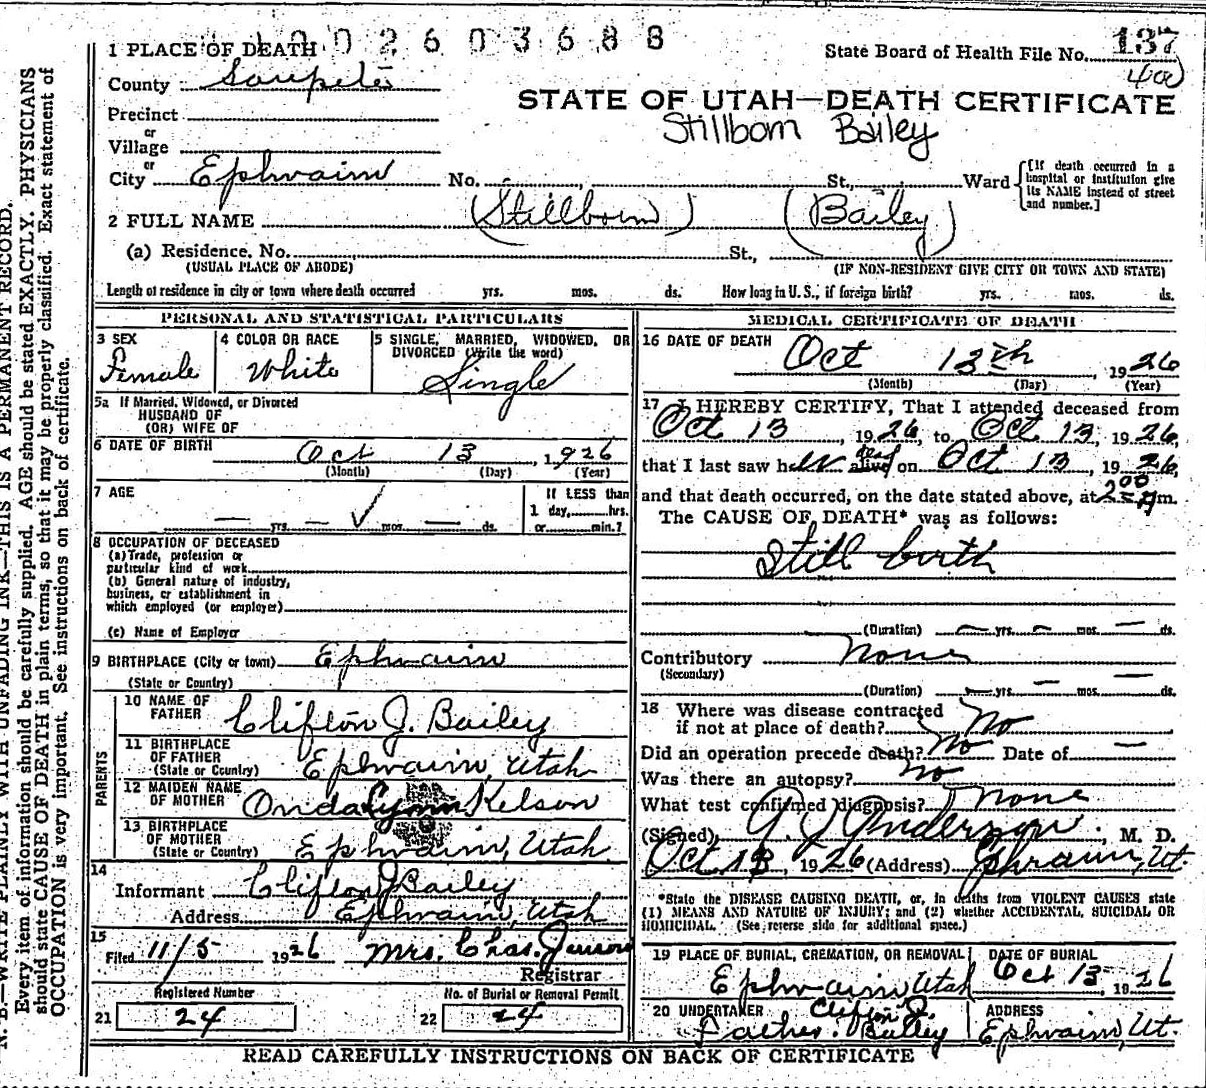 1 PLACE OF DEATH 0 0 2 6 0 3 6 8 8
State Board of Health File No. 137
400
County Sanpete
STATE OF UTAH—DEATH CERTIFICATE
Stillborn Bailey
Precinct
or
Village
or
City Ephraim No. St., Ward
[If death occurred in a
hospital or institution give
its NAME instead of street
and number.]
2 FULL NAME (Stillborn) (Bailey)
(a) Residence. No. St.,
(USUAL PLACE OF ABODE) (IF NON-RESIDENT GIVE CITY OR TOWN AND STATE)
Length of residence in city or town where death occurred yrs. mos. ds. How long in U. S., if foreign birth? yrs. mos. ds.
PERSONAL AND STATISTICAL PARTICULARS
3 SEX
Female
4 COLOR OR RACE
White
5 SINGLE, MARRIED, WIDOWED, OR
DIVORCED (Write the word)
Single
5a If Married, Widowed, or Divorced
HUSBAND OF
(OR) WIFE OF
6 DATE OF BIRTH Oct 13 1926
(Month) (Day) (Year)
7 AGE
— yrs. — mos. — ds.
If LESS than
1 day, hrs.
or min.?
8 OCCUPATION OF DECEASED
(a) Trade, profession or
particular kind of work
(b) General nature of industry,
business, or establishment in
which employed (or employer)
(c) Name of Employer
9 BIRTHPLACE (City or town) Ephraim
(State or Country)
PARENTS
10 NAME OF
FATHER Clifton J. Bailey
11 BIRTHPLACE
OF FATHER
(State or Country) Ephraim, Utah
12 MAIDEN NAME
OF MOTHER Onda Kelson
13 BIRTHPLACE
OF MOTHER
(State or Country) Ephraim, Utah
14
Informant Clifton J Bailey
Address Ephraim, Utah
15
Filed 11/5 1926 Mrs. Chas. Jensen
Registrar
Registered Number No. of Burial or Removal Permit
21 24 22 24
MEDICAL CERTIFICATE OF DEATH
16 DATE OF DEATH Oct 13th, 1926
(Month) (Day) (Year)
17 I HEREBY CERTIFY, That I attended deceased from
Oct 13, 1926, to Oct 13, 1926,
that I last saw her alive dead on Oct 13, 1926,
and that death occurred, on the date stated above, at 2 00 A m.
The CAUSE OF DEATH* was as follows:
Still birth
(Duration) — yrs. — mos. — ds.
Contributory None
(Secondary)
(Duration) — yrs. — mos. — ds.
18 Where was disease contracted
if not at place of death? No
Did an operation precede death? No Date of —
Was there an autopsy? no
What test confirmed diagnosis? none
(Signed) Anderson, M. D.
Oct 13, 1926 (Address) Ephraim, Ut.
*State the DISEASE CAUSING DEATH, or, in deaths from VIOLENT CAUSES state
(1) MEANS AND NATURE OF INJURY; and (2) whether ACCIDENTAL, SUICIDAL OR
HOMICIDAL. (See reverse side for additional space.)
19 PLACE OF BURIAL, CREMATION, OR REMOVAL
Ephraim Utah
DATE OF BURIAL
Oct 13, 1926
20 UNDERTAKER Clifton J.
Father. Bailey
ADDRESS
Ephraim, Ut.
READ CAREFULLY INSTRUCTIONS ON BACK OF CERTIFICATE
N. B.—WRITE PLAINLY WITH UNFADING INK—THIS IS A PERMANENT RECORD.
Every item of information should be carefully supplied. AGE should be stated EXACTLY. PHYSICIANS
should state CAUSE OF DEATH in plain terms, so that it may be properly classified. Exact statement of
OCCUPATION is very important. See instructions on back of certificate.